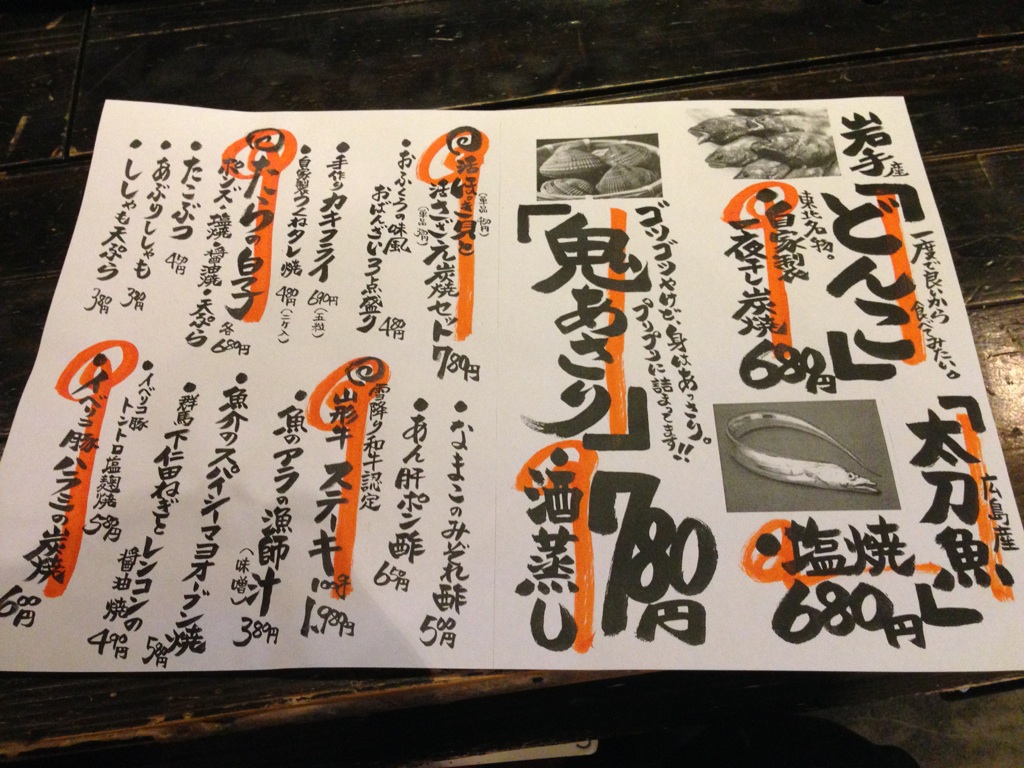 岩手産
「どんこ」
一度で良いから食べてみたい。
東北名物。
・自家製
一夜干し炭焼
680円
広島産
「太刀魚」
・塩焼
680円
「鬼あさり」
ゴツゴツやけど身はあっさり。
プリプリに詰まってます!!
・酒蒸し
780円
活ほっき貝と
活さざえ炭焼セット
780円
・おふくろの味風
おばんざい3点盛り
480円
・手作りカキフライ
690円(五粒)
・自家製つくねタレ焼
480円(二ケ入)
たらの白子
ポンズ・塩焼・醤油焼・天ぷら
各680円
・たこぶつ
・あぶりししゃも
380円
・ししゃも天ぷら
380円
・なまこのみぞれ酢
500円
・あん肝ポン酢
雪降り和牛認定
山形牛ステーキ
1,980円
・魚のアラの漁師汁
(味噌)
380円
・魚介のスパイシーマヨオーブン焼
580円
・群馬下仁田ねぎとレンコンの
醤油焼
490円
・イベリコ豚
トントロ塩麹焼
580円
・イベリコ豚ハラミの炭焼
600円